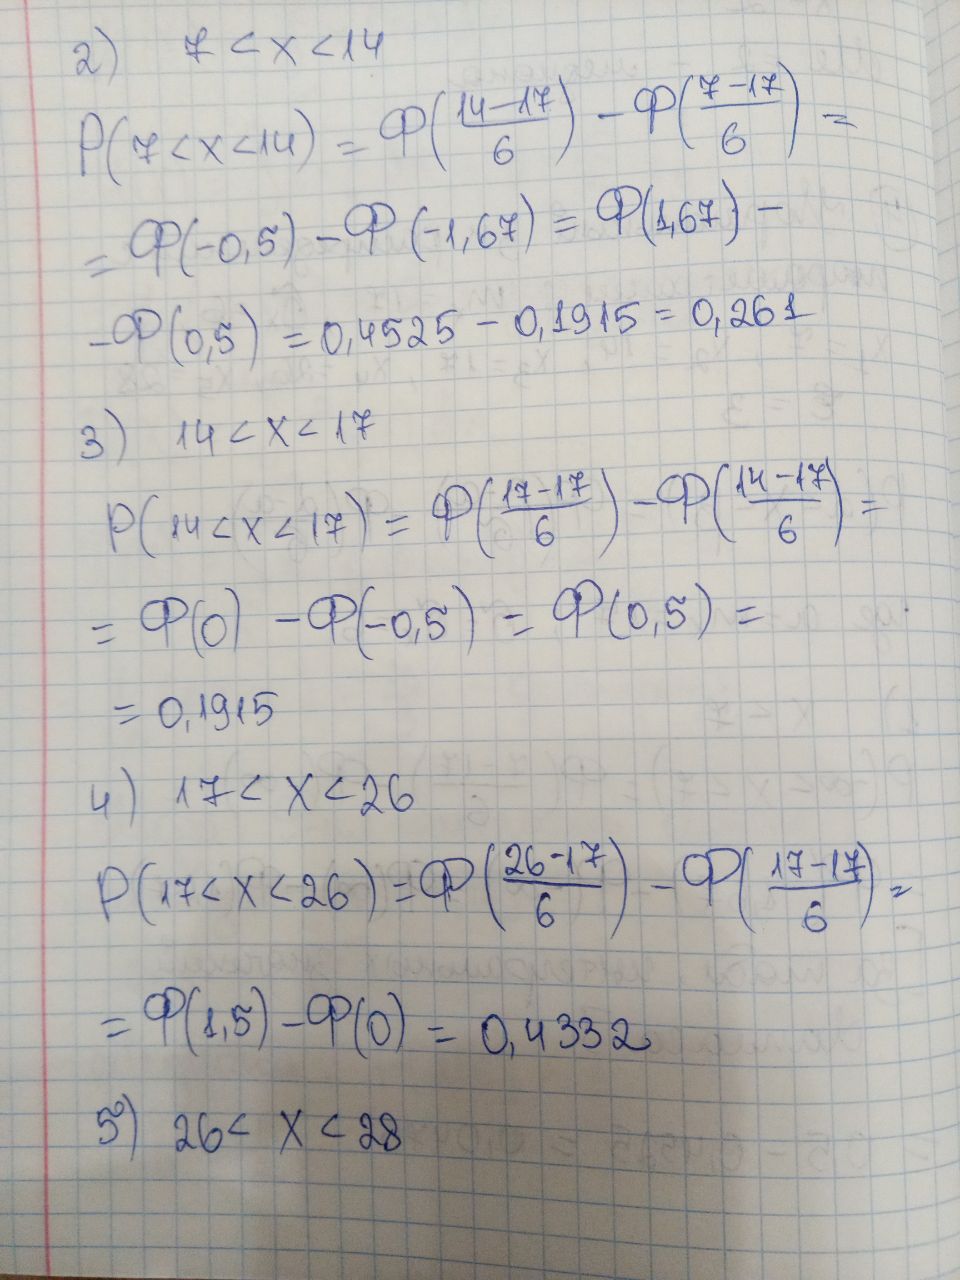 2) 7 < x < 14
P(7 < x < 14) = Ф((14-17)/6) - Ф((7-17)/6) =
= Ф(-0,5) - Ф(-1,67) = Ф(1,67) -
- Ф(0,5) = 0,4525 - 0,1915 = 0,261
3) 14 < x < 17
P(14 < x < 17) = Ф((17-17)/6) - Ф((14-17)/6) =
= Ф(0) - Ф(-0,5) = Ф(0,5) =
= 0,1915
4) 17 < x < 26
P(17 < x < 26) = Ф((26-17)/6) - Ф((17-17)/6) =
= Ф(1,5) - Ф(0) = 0,4332
5) 26 < x < 28